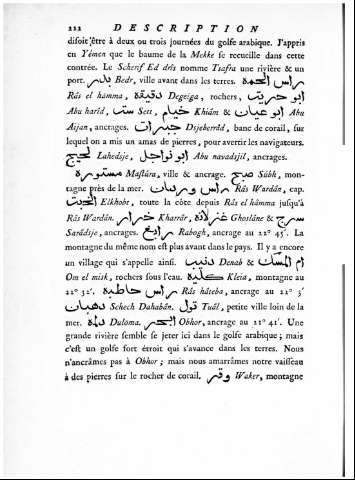 222 DESCRIPTION
disoit être à deux ou trois journées du golfe arabique. J'appris
en Yémen que le baume de la Mekke se recueille dans cette
contrée. Le Scherif Ed dris nomme Tiafra une rivière & un
port. بدر Bedr, ville avant dans les terres. راس الحمة
Râs el hamma, دقيقة Degeiga, rochers, ابو حريت
Abu harîd, ست Sett, خيام Khiâm & ابو عيان Abu
Aijan, ancrages. جبرات Dsjeberrâd, banc de corail, sur
lequel on a mis un amas de pierres, pour avertir les navigateurs.
لحيج Lahedsje, ابو نواجل Abu navadsjil, ancrages.
مستورة Mastûra, ville & ancrage. صبح Súbh, mon-
tagne près de la mer. راس وردان Râs Wardân, cap.
الخبت Elkhobt, toute la côte depuis Râs el hámma jusqu'à
Râs Wardân. خرار Kharrâr, غزلانة Ghoslâne & سرج
Sarâdsje, ancrages. رابغ Rabogh, ancrage au 22° 45′. La
montagne du même nom est plus avant dans le pays. Il y a encore
un village qui s'appelle ainsi. دنيب Denab & ام المسك
Om el misk, rochers sous l'eau. كلية Kleia, montagne au
22° 32′. راس حاطبة Râs háteba, ancrage au 22° 3′
دهبان Schech Dahabân. تول Tuâl, petite ville loin de la
mer. دامة Duloma. ابحر Obhor, ancrage au 21° 41′. Une
grande rivière semble se jeter ici dans le golfe arabique; mais
c'est un golfe fort étroit qui s'avance dans les terres. Nous
n'ancrâmes pas à Obhor; mais nous amarrâmes notre vaisseau
à des pierres sur le rocher de corail. وقر Waker, montagne